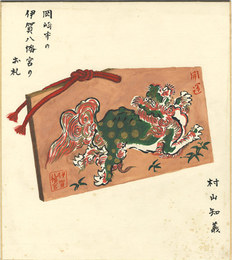 岡崎市の
伊賀八幡宮の
お札
開運
村山知義